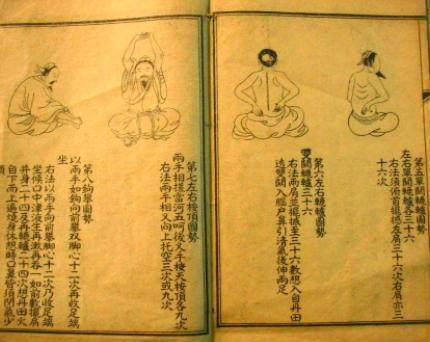 第五單關轆轤圖勢
左右單關轆轤各三十六
右法須俯首擺撼左肩三十六次右肩亦三
十六次
第六左右轆轤圖勢
雙關轆轤三十六
右法兩肩並擺撼至三十六數想火自丹田
透雙關入腦戶鼻引清氣後伸兩足
第七左右按頂圖勢
兩手相搓當呵五呵後叉手按天按頂各九次
右法兩手相叉向上托空三次或九次
第八鉤攀圖勢
以兩手如鉤向前攀雙脚心十二次再收足端
坐
右法以兩手向前攀脚心十二次乃收足端
坐候口中津液生再漱再吞一如前數擺肩
并身二十四及再轆轤二十四次想丹田火
自下而上遍燒身体想時口鼻皆須閉氣少
頃